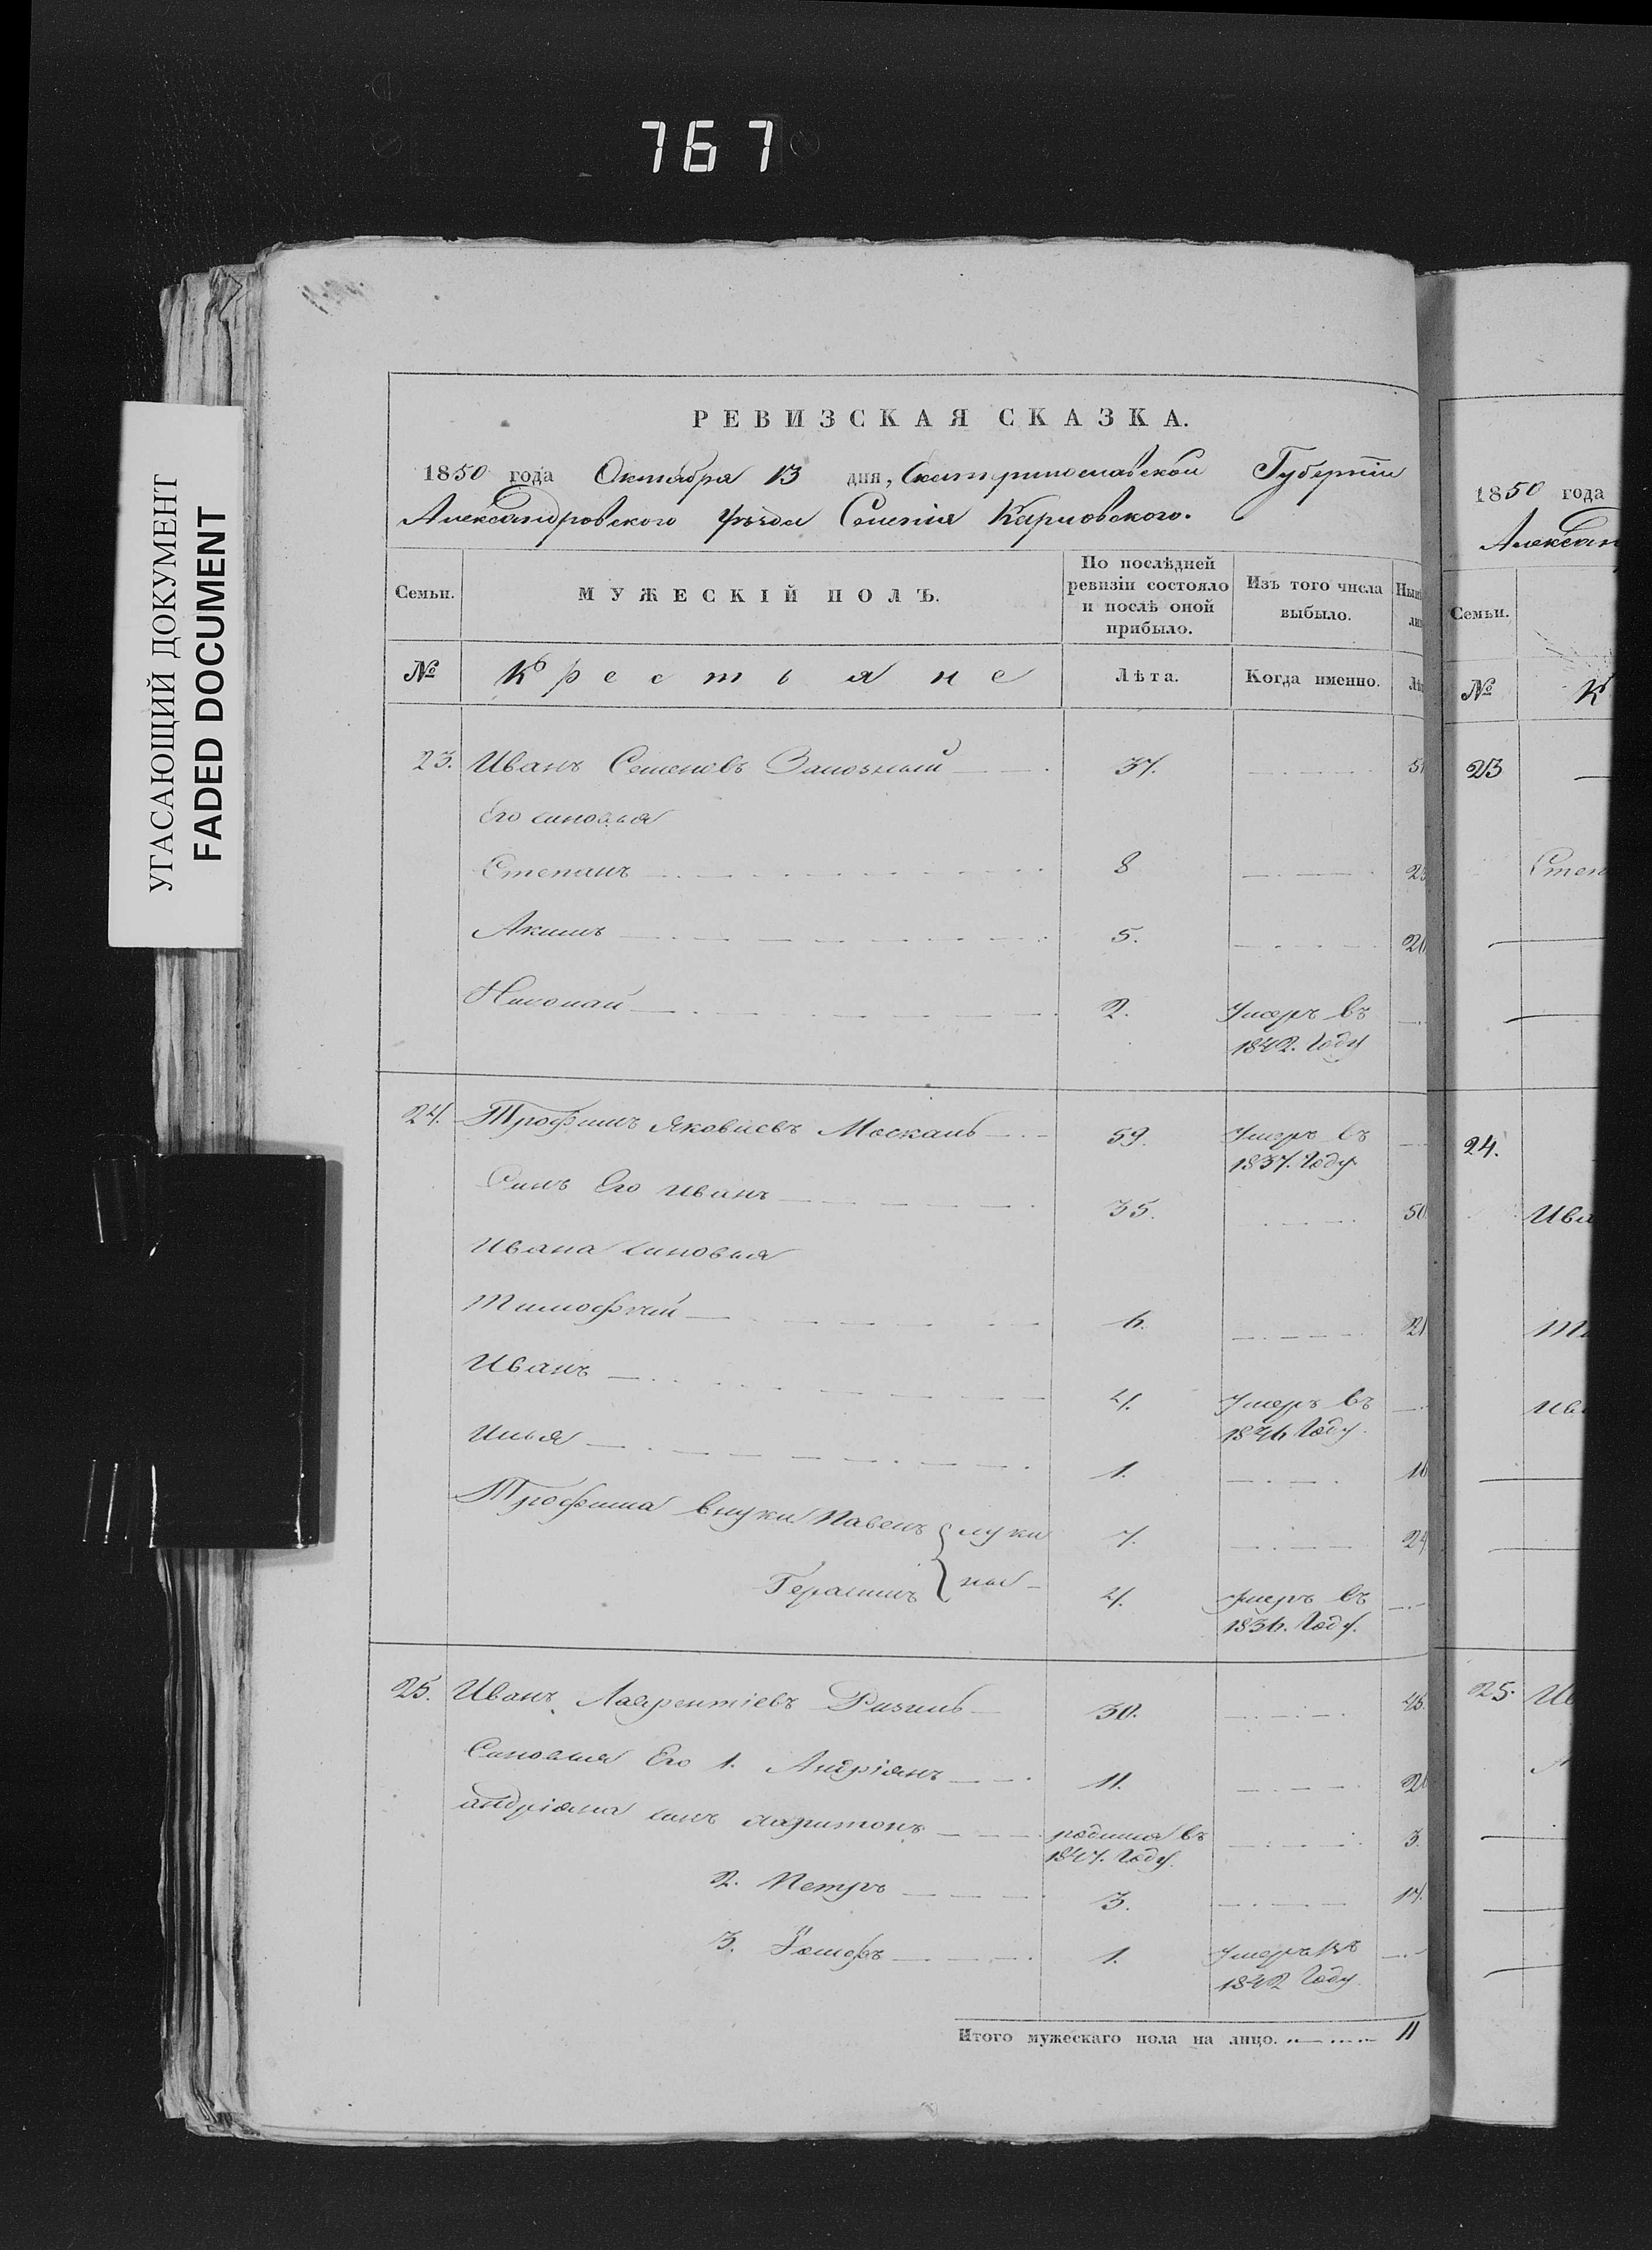 767
УГАСАЮЩИЙ ДОКУМЕНТ
FADED DOCUMENT
РЕВИЗСКАЯ СКАЗКА.
1850 года Октября 13 дня, Екатеринославской Губерніи
Александровского уѣзда Селенія Карловского.
Семьи.
МУЖЕСКІЙ ПОЛЪ.
По послѣдней ревизіи состояло и послѣ оной прибыло.
Изъ того числа выбыло.
№
Крестьяне
Лѣта.
Когда именно.
23. Иванъ Семеновъ 37.
Его синовья
Степанъ 8
Акимъ 5.
Николай 2. Умеръ въ
1842. Году
24. Трофимъ Яковлевъ Москаль 59. Умеръ въ
1837. Году
Синъ Его Иванъ 35. 50
Ивана синовья
Тимофѣй 6. 21
Иванъ 4. Умеръ въ
1846 Году.
Илья 1. 16
Трофима внуки Павелъ 7.
Герасимъ 4. Умеръ въ
1836. Году.
25. Иванъ Лаврентіевъ 30. 45.
Синовья Его 1. Андріянъ 11. 26
андріяна синъ харитонъ родился въ 3.
1847. Году.
2. Петръ 3. 17.
3. 1. Умеръ въ
1842 Году.
Итого мужескаго пола на лицо. 11
1850 года
Алексан
Семьи.
№
К
23
Степ
24.
Ива
Ти
Ива
25. Ив